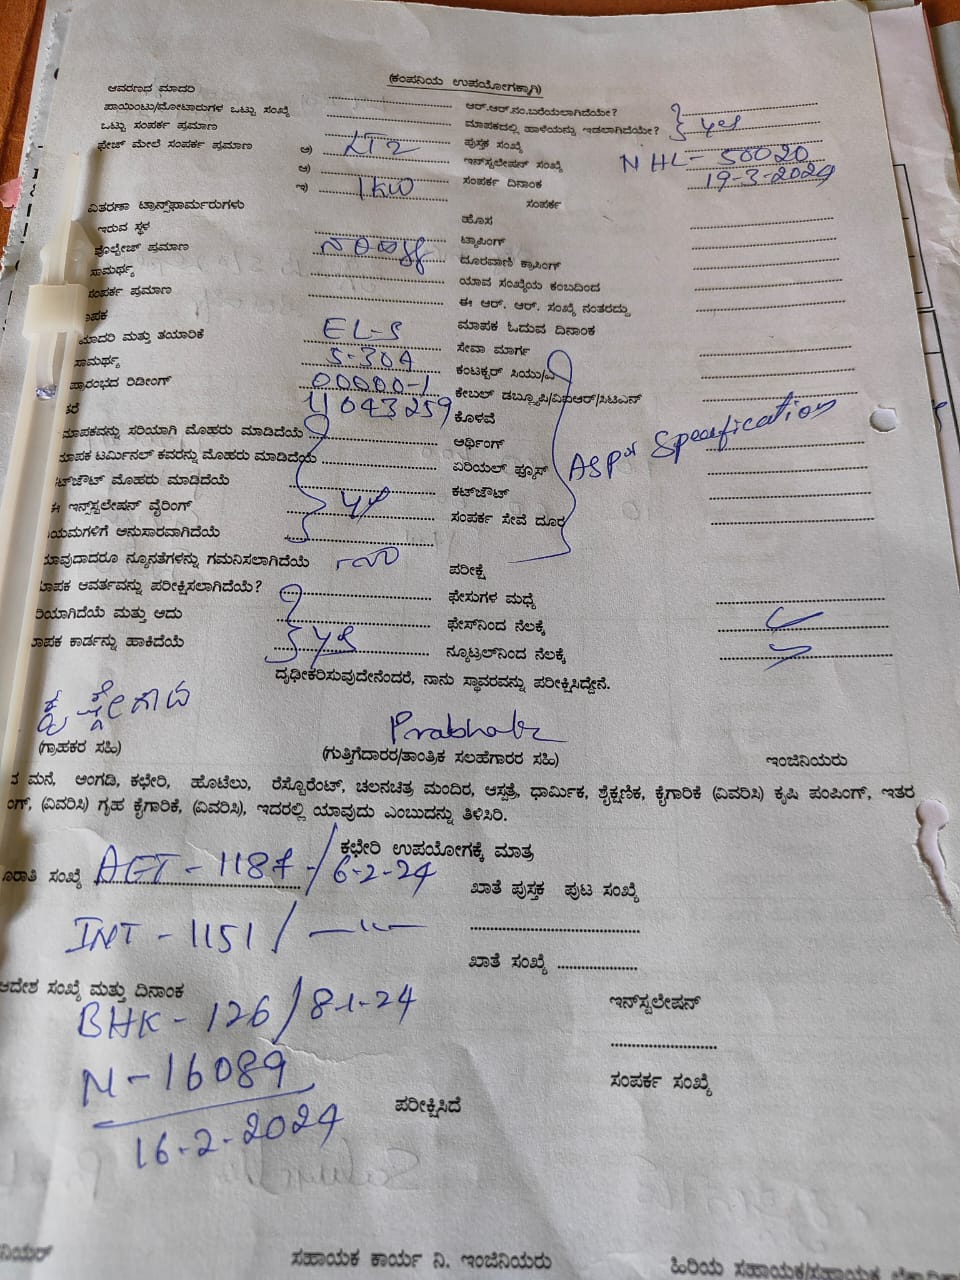 (ಕಂಪನಿಯ ಉಪಯೋಗಕ್ಕಾಗಿ)
ಆವರಣದ ಮಾದರಿ
ಆರ್.ಆರ್.ನಂ.ಬರೆಯಲಾಗಿದೆಯೇ?
ಪಾಯಿಂಟು/ಮೋಟಾರುಗಳ ಒಟ್ಟು ಸಂಖ್ಯೆ
ಮಾಪಕದಲ್ಲಿ ಹಾಳೆಯನ್ನು ಇಡಲಾಗಿದೆಯೇ? yes
ಒಟ್ಟು ಸಂಪರ್ಕ ಪ್ರಮಾಣ
ಪುಸ್ತಕ ಸಂಖ್ಯೆ
ಫೇಜ್ ಮೇಲೆ ಸಂಪರ್ಕ ಪ್ರಮಾಣ ಅ) LT2
ಇನ್‌ಸ್ಟಲೇಷನ್ ಸಂಖ್ಯೆ NHL-50020
ಆ)
ಸಂಪರ್ಕ ದಿನಾಂಕ 19-3-2024
ಇ) 1KW
ಸಂಪರ್ಕ
ವಿತರಣಾ ಟ್ರಾನ್ಸ್‌ಫಾರ್ಮರುಗಳು
ಹೊಸ
ಇರುವ ಸ್ಥಳ
ಟ್ಯಾಪಿಂಗ್
ವೋಲ್ಟೇಜ್ ಪ್ರಮಾಣ
ದೂರವಾಣಿ ಕ್ರಾಸಿಂಗ್
ಸಾಮರ್ಥ್ಯ
ಯಾವ ಸಂಖ್ಯೆಯ ಕಂಬದಿಂದ
ಸಂಪರ್ಕ ಪ್ರಮಾಣ
ಈ ಆರ್. ಆರ್. ಸಂಖ್ಯೆ ನಂತರದ್ದು
ಾಪಕ
ಮಾಪಕ ಓದುವ ದಿನಾಂಕ
ಮಾದರಿ ಮತ್ತು ತಯಾರಿಕೆ EL-S
ಸೇವಾ ಮಾರ್ಗ
ಸಾಮರ್ಥ್ಯ 5-30A
ಕಂಟಕ್ಟರ್ ಸಿಯು/ಎ
ಪ್ರಾರಂಭದ ರಿಡೀಂಗ್ 00000-1
ಕೇಬಲ್ ಡಬ್ಲ್ಯೂಪಿ/ವಿಐಆರ್/ಸಿಟಿಎನ್
ತರೆ 11043259
ಕೊಳವೆ
ಮಾಪಕವನ್ನು ಸರಿಯಾಗಿ ಮೊಹರು ಮಾಡಿದೆಯೆ
ಅರ್ಥಿಂಗ್
ASPer Specification
ಮಾಪಕ ಟರ್ಮಿನಲ್ ಕವರನ್ನು ಮೊಹರು ಮಾಡಿದೆಯೆ
ಏರಿಯಲ್ ಫ್ಯೂಸ್
ಟ್‌ಔಟ್ ಮೊಹರು ಮಾಡಿದೆಯೆ
ಕಟ್‌ಔಟ್
ಈ ಇನ್‌ಸ್ಟಲೇಷನ್ ವೈರಿಂಗ್ yes
ಸಂಪರ್ಕ ಸೇವೆ ದೂರ
ಯಮಗಳಿಗೆ ಅನುಸಾರವಾಗಿದೆಯೆ
ಯಾವುದಾದರೂ ನ್ಯೂನತೆಗಳನ್ನು ಗಮನಿಸಲಾಗಿದೆಯೆ
ಪರೀಕ್ಷೆ
ಮಾಪಕ ಆವರ್ತವನ್ನು ಪರೀಕ್ಷಿಸಲಾಗಿದೆಯೆ?
ಫೇಸುಗಳ ಮಧ್ಯೆ
ರಿಯಾಗಿದೆಯೆ ಮತ್ತು ಅದು
ಫೇಸ್‌ನಿಂದ ನೆಲಕ್ಕೆ
ಮಾಪಕ ಕಾರ್ಡನ್ನು ಹಾಕಿದೆಯೆ yes
ನ್ಯೂಟ್ರಲ್‌ನಿಂದ ನೆಲಕ್ಕೆ
ದೃಢೀಕರಿಸುವುದೇನೆಂದರೆ, ನಾನು ಸ್ಥಾವರವನ್ನು ಪರೀಕ್ಷಿಸಿದ್ದೇನೆ.
Prabhakr
(ಗ್ರಾಹಕರ ಸಹಿ)
(ಗುತ್ತಿಗೆದಾರರ/ತಾಂತ್ರಿಕ ಸಲಹೆಗಾರರ ಸಹಿ)
ಇಂಜಿನಿಯರು
ನ ಮನೆ, ಅಂಗಡಿ, ಕಛೇರಿ, ಹೊಟೆಲು, ರೆಸ್ಟೊರೆಂಟ್, ಚಲನಚಿತ್ರ ಮಂದಿರ, ಆಸ್ಪತ್ರೆ, ಧಾರ್ಮಿಕ, ಶೈಕ್ಷಣಿಕ, ಕೈಗಾರಿಕೆ (ವಿವರಿಸಿ) ಕೃಷಿ ಪಂಪಿಂಗ್, ಇತರ
ಂಗ್, (ವಿವರಿಸಿ) ಗೃಹ ಕೈಗಾರಿಕೆ, (ವಿವರಿಸಿ), ಇದರಲ್ಲಿ ಯಾವುದು ಎಂಬುದನ್ನು ತಿಳಿಸಿರಿ.
ಕಛೇರಿ ಉಪಯೋಗಕ್ಕೆ ಮಾತ್ರ
ಸಂಖ್ಯೆ AET-1187/6-2-24
ಖಾತೆ ಪುಸ್ತಕ ಪುಟ ಸಂಖ್ಯೆ
INT-1151/ —"—
ಖಾತೆ ಸಂಖ್ಯೆ
ಆದೇಶ ಸಂಖ್ಯೆ ಮತ್ತು ದಿನಾಂಕ
ಇನ್‌ಸ್ಟಲೇಷನ್
BHK-126/8-1-24
N-16089
ಸಂಪರ್ಕ ಸಂಖ್ಯೆ
16-2-2024
ಪರೀಕ್ಷಿಸಿದೆ
ನಿಯರ್
ಸಹಾಯಕ ಕಾರ್ಯ ನಿ. ಇಂಜಿನಿಯರು
ಹಿರಿಯ ಸಹಾಯಕ/ಸಹಾಯಕ